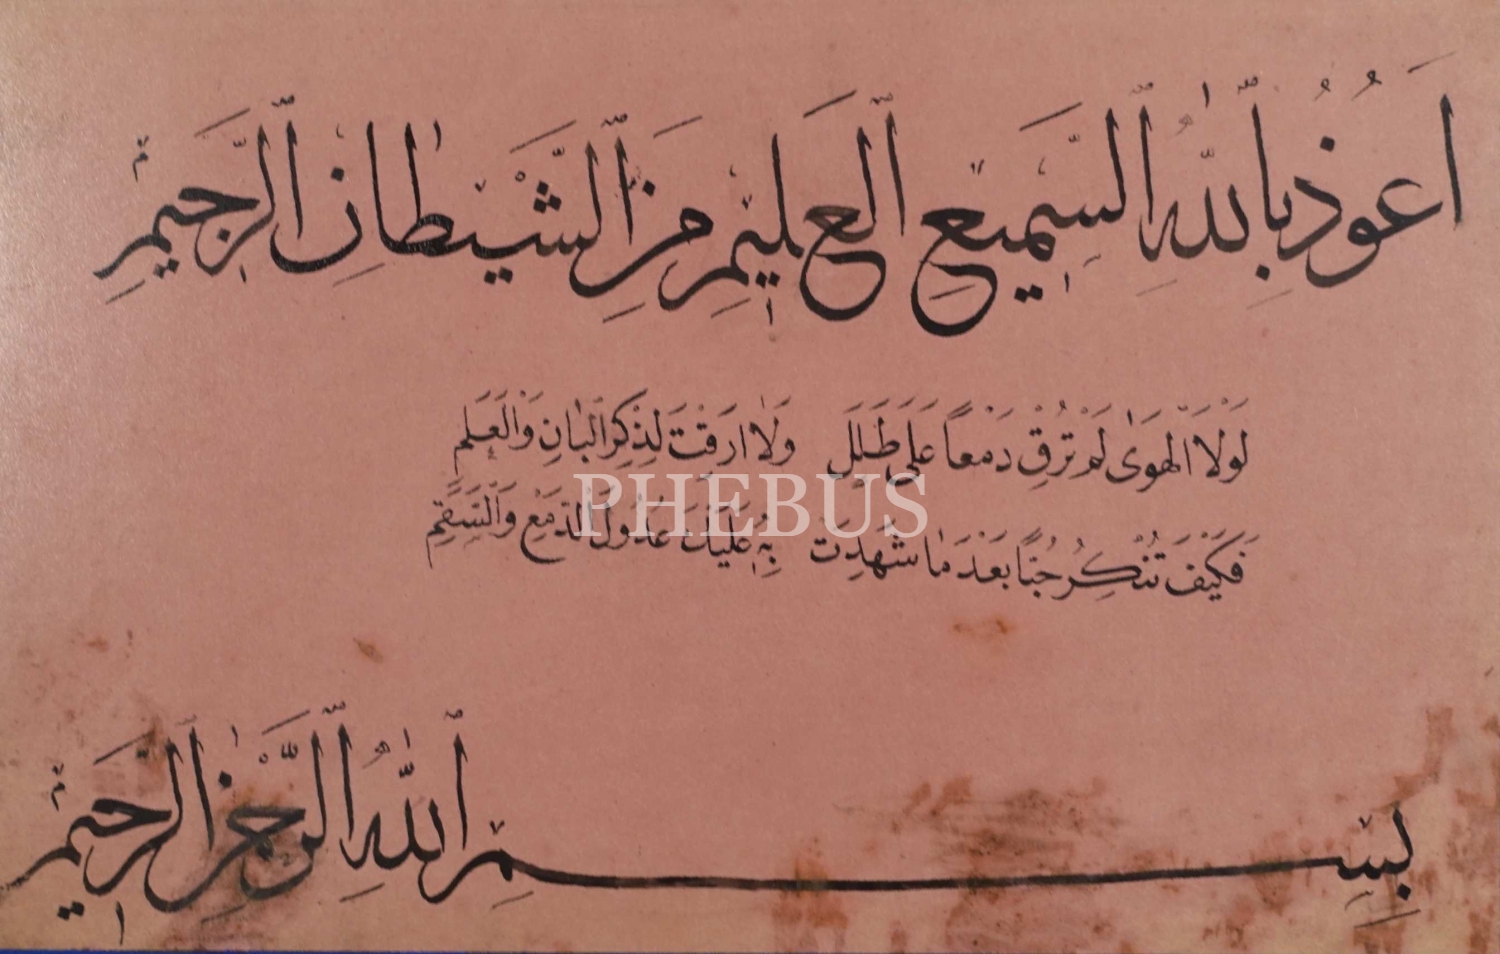 اَعُوذُ بِاللّٰهِ السَّمِيعِ الْعَلِيمِ مِنَ الشَّيْطَانِ الرَّجِيمِ
لَوْلَا الْهَوٰى لَمْ تُرِقْ دَمْعًا عَلٰى طَلَلٍ وَلَا اَرِقْتَ لِذِكْرِ الْبَانِ وَالْعَلَمِ
PHEBUS
فَكَيْفَ تُنْكِرُ حُبًّا بَعْدَ مَا شَهِدَتْ بِهِ عَلَيْكَ عُدُولُ الدَّمْعِ وَالسَّقَمِ
بِسْمِ اللّٰهِ الرَّحْمٰنِ الرَّحِيمِ